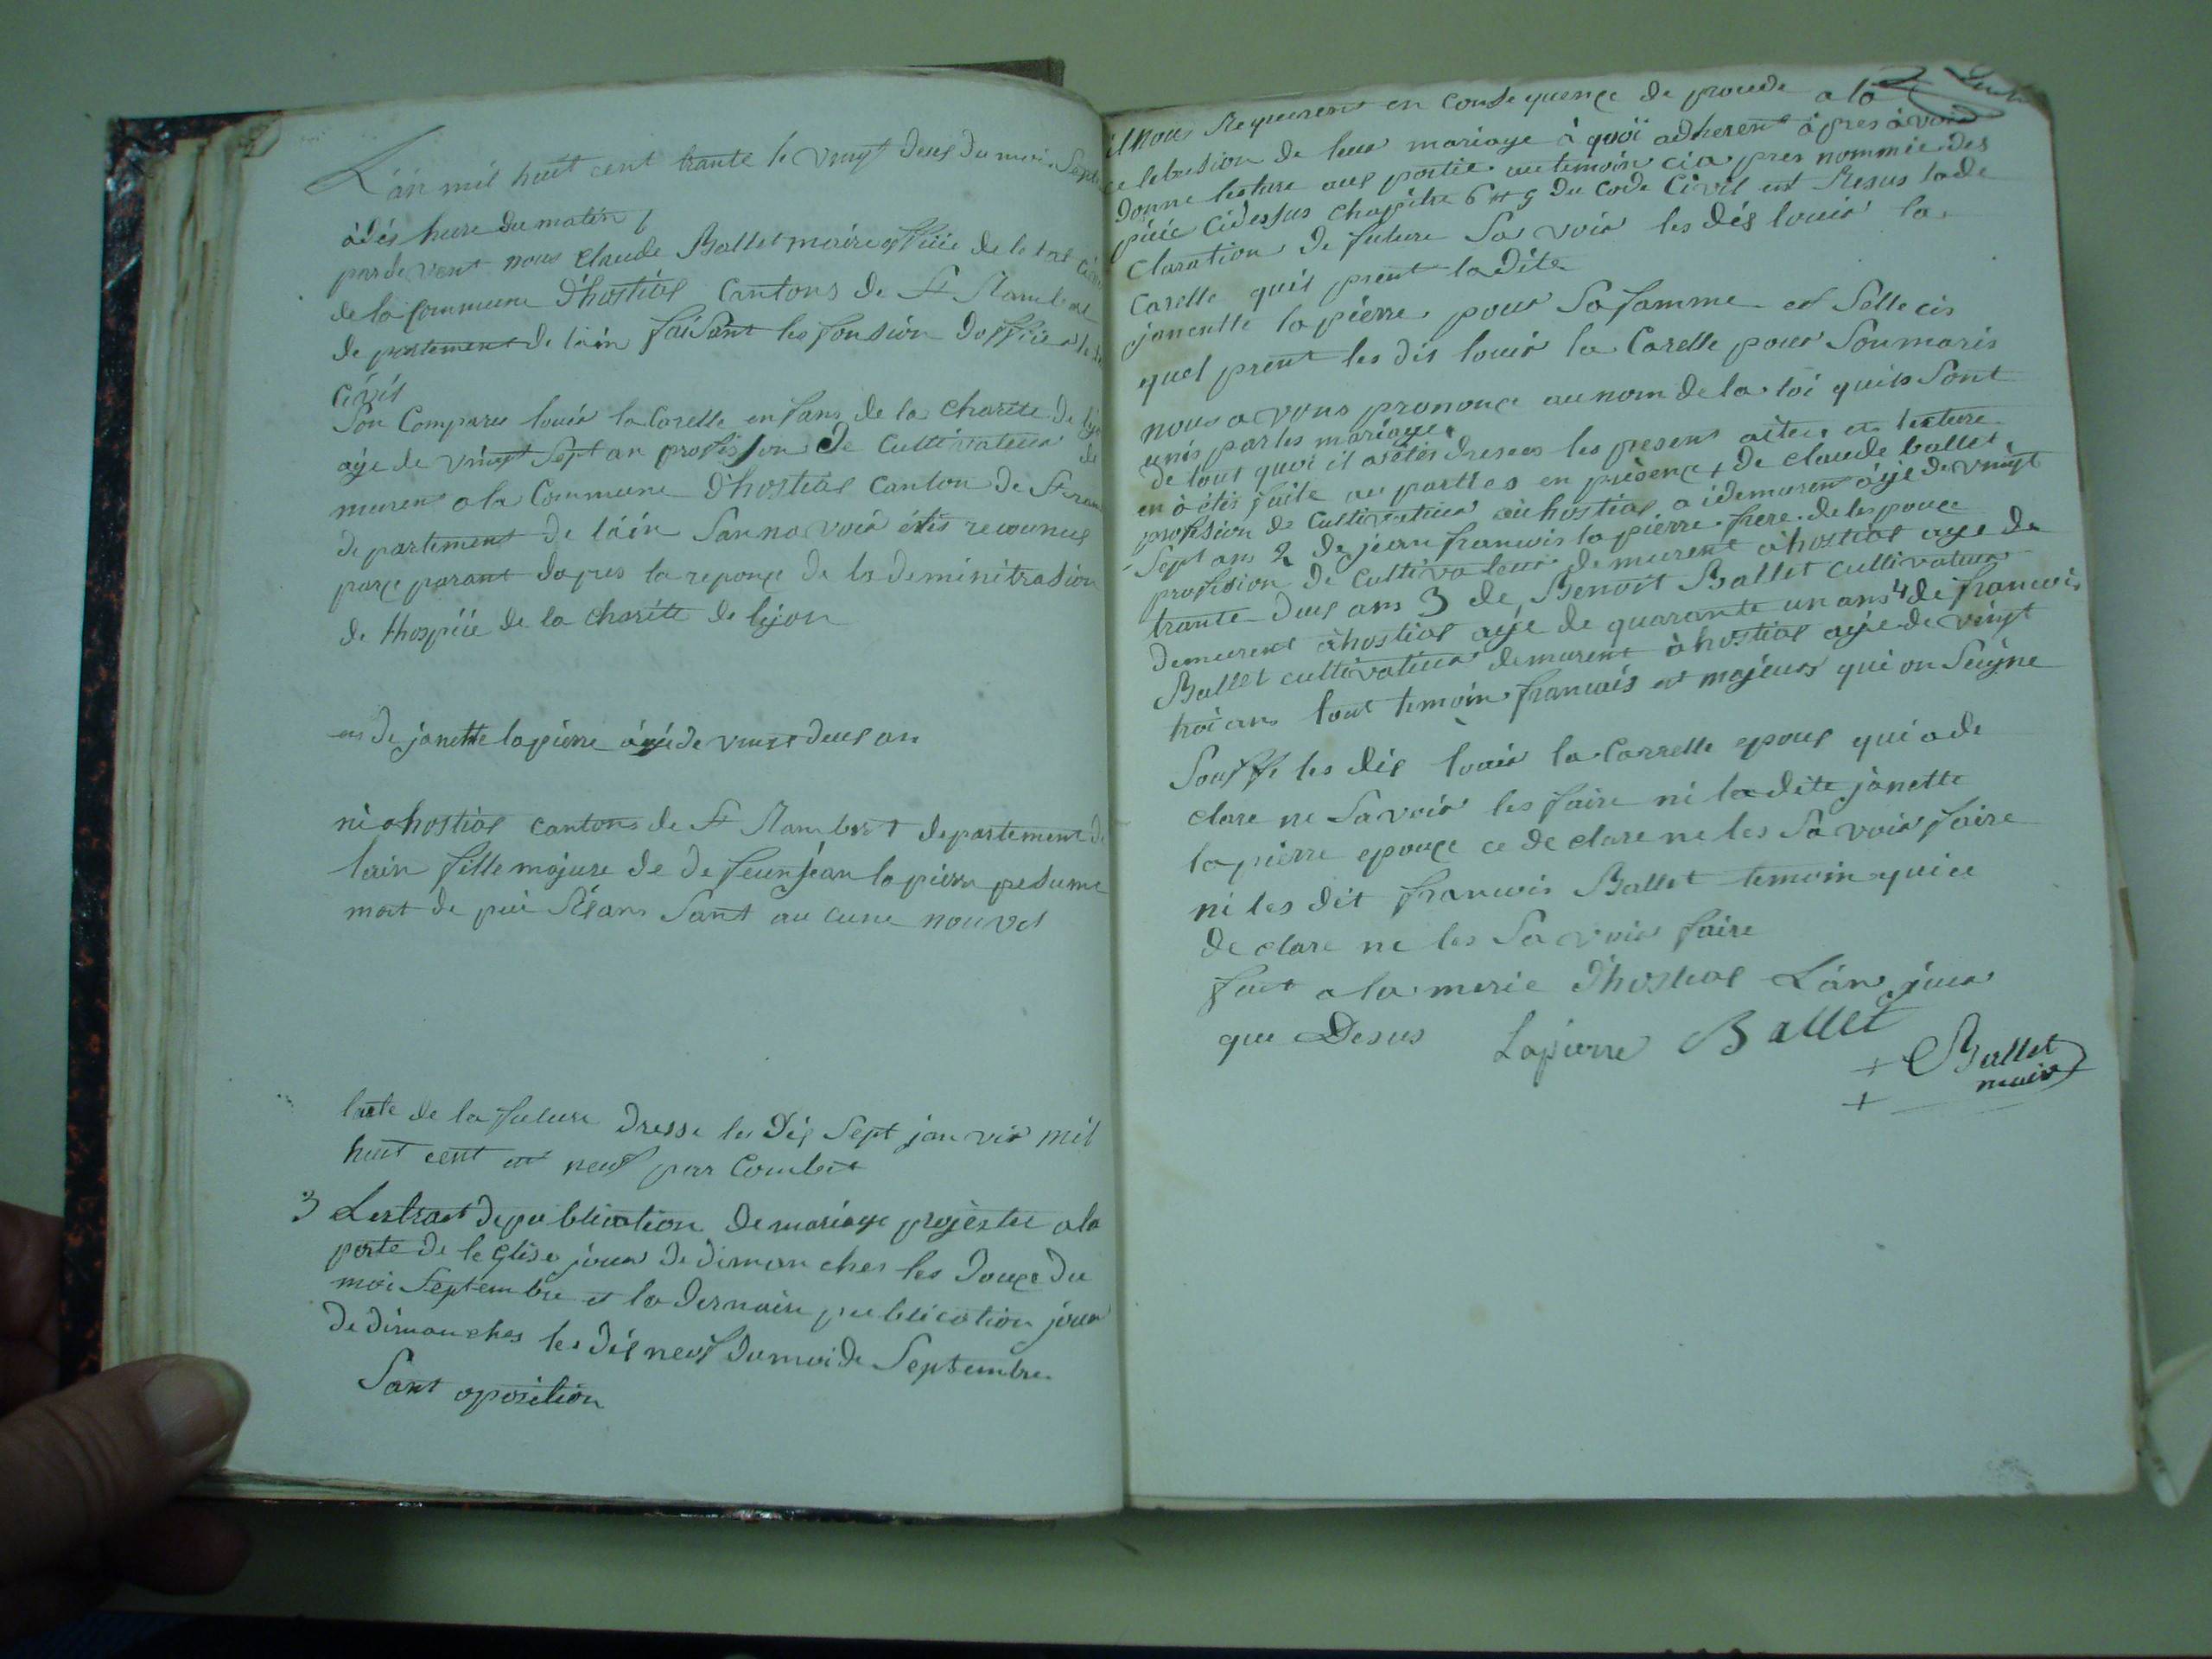 L'an mil huit cent trante le vingt deux du moi Sept
à dis heure du matin
par de vent nous Claude Ballet maire offiiie de le tat civ
de la Commune d'hostias Cantons de St Rambert
de partement de l'ain faisant les fonsion dofficie
Civil
Son Comparu louis la Carelle enfans de la Charite de
aije de vingt Sept an profission de Cultivateur de
murent a la Commune d'hostias Canton de St ram
de partement de l'ain San na voir étés reconnus
par parant dapres la reponçe de la deminitrasion
de thospiie de la Charité de lyon
et de janette lapierre agé de vingt deux an
né a hostias Cantons de St Rambert departement de
lain fille majure de de feu jean lapierre presumé
mort de puis ans Sant au cune nouvel
lacte de la future dresse les dis Sept janvier mil
huit cent et neuf par Combet
3 Lextrait de publication de mariage projestée a la
porte de leglise jour de dimanches les douze du
moi Septembre et la dernaire publication jour
de dimanches les dis neuf du moi de Septembre
Sant oposition
il nous Requerent en Consequençe de proude a la
celebrasion de leur mariage à quoi adherent à pres avoir
donne lesture aux portie au temoin ci a pres nommée des
piéc Cidessus Chapitre 6 du Code Civil est Resus la de
Claration de future Savoir les dis louis la
Carelle quis prent la dite
janentte lapierre pour Sa famme et Selle cis
quel prent les dis louis la Carelle pour Son maris
nous avons prononçe au nom de la loi quils Sont
unis par les mariage
de tout quoi il a étés dresees les present acte et lecture
en à étés faite au parties en presençe 1 de Claude ballet
profesion de Cultivateur a hostias demurent aije de vingt
Sept ans 2 de jean francois lapierre frere de les pouce
profision de Cultivateur demurent à hostias aije de
trante deux ans 3 de Benoit Ballet Cultivateur
demeurent à hostias aijé de quarante un ans 4 de francois
Ballet cultivateur demurent à hostias aije de vingt
trois ans tout temoin francais et majeurs qui on Seigne
les dis louis la Carrelle epoux qui a de
clare ne Savoir les faire ni la dite janette
lapierre epouçe ce de clare ne les Savoir faire
ni les dit francois Ballet temoin qui ce
de clare ne les Savoir faire
fait a la merie d'hostias L'an jour
que Desus Lapierre Ballet
+ Ballet
maire
+